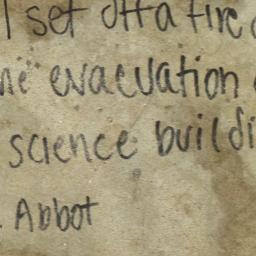 I set off a fire
evacuation
science buildi
. Abbot